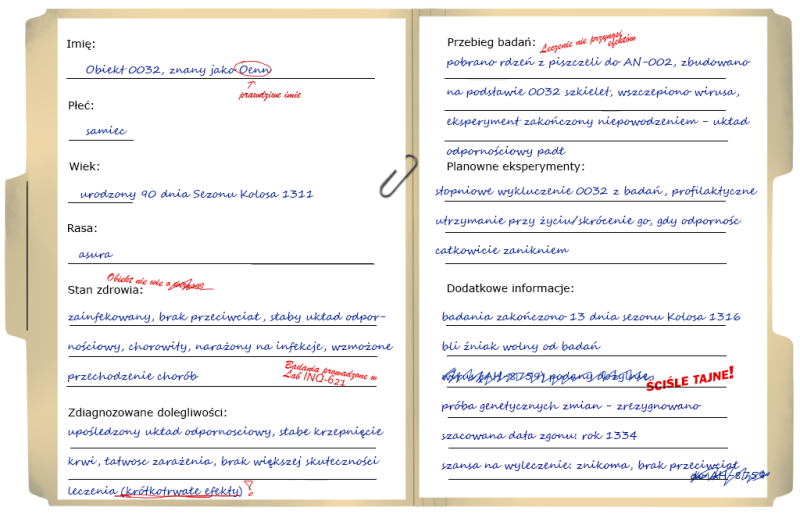 Imię:
Obiekt 0032, znany jako Oenn
prawdziwe imie
Płeć:
samiec
Wiek:
urodzony 90 dnia Sezonu Kolosa 1311
Rasa:
asura
Obiekt nie wie o
Stan zdrowia:
zainfekowany, brak przeciwciał, słaby układ odpor-
nościowy, chorowity, narażony na infekcje, wzmożone
przechodzenie chorób
Badania prowadzone w
Lab INQ-621
Zdiagnozowane dolegliwości:
upośledzony układ odpornosciowy, słabe krzepnięcie
krwi, łatwosc zarażenia, brak większej skuteczności
leczenia (krótkotrwałe efekty) ?
Przebieg badań:
Leczenie nie przynosi
efektów
pobrano rdzeń z piszczeli do AN-002, zbudowano
na podstawie 0032 szkielet, wszczepiono wirusa,
eksperyment zakończony niepowodzeniem - układ
odpornościowy padł
Planowne eksperymenty:
stopniowe wykluczenie 0032 z badań, profilaktyczne
utrzymanie przy życiu/skrócenie go, gdy odpornośc
całkowicie zanikniem
Dodatkowe informacje:
badania zakończono 13 dnia sezonu Kolosa 1316
bli źniak wolny od badań
ŚCIŚLE TAJNE!
próba genetycznych zmian - zrezygnowano
szacowana data zgonu: rok 1334
szansa na wyleczenie: znikoma, brak przeciwciał